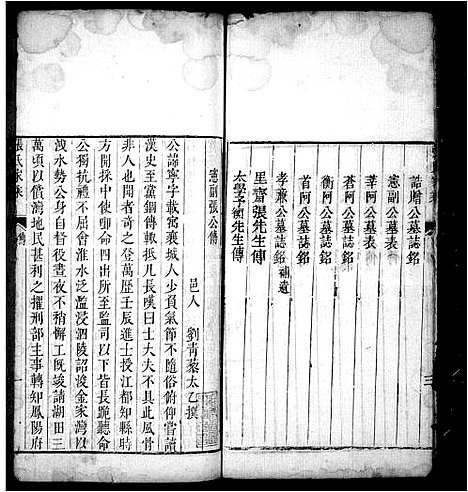 誥贈公墓誌銘
憲副公墓表
莘阿公墓表
蒼阿公墓誌銘
衡阿公墓誌銘
首阿公墓誌銘
孝兼公墓誌銘 補遺
里齋張先生傳
太學子衡先生傳
三
憲副張公傳
邑人 劉青藜太乙撰
公諱寧字載寓襄城人少負氣節不隨俗俯仰嘗讀
漢史至黨錮傳輒抵几長嘆曰士大夫不具此風骨
非人也聞者奇之登萬歷壬辰進士授江都知縣時
方開採中使啣命四出所至監司以下皆長跪聽命
公獨抗禮不屈會淮水泛濫浸泗陵詔浚金家灣以
洩水勢公身自督役晝夜不稍懈工旣竣請湖田三
萬頃以償灣地民甚利之擢刑部主事轉知鳳陽府
張氏家乘 傳 一